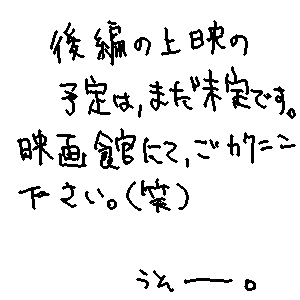 後編の上映の
予定は,まだ未定です。
映画館にて,ごカクニン
下さい。(笑)
うそー。